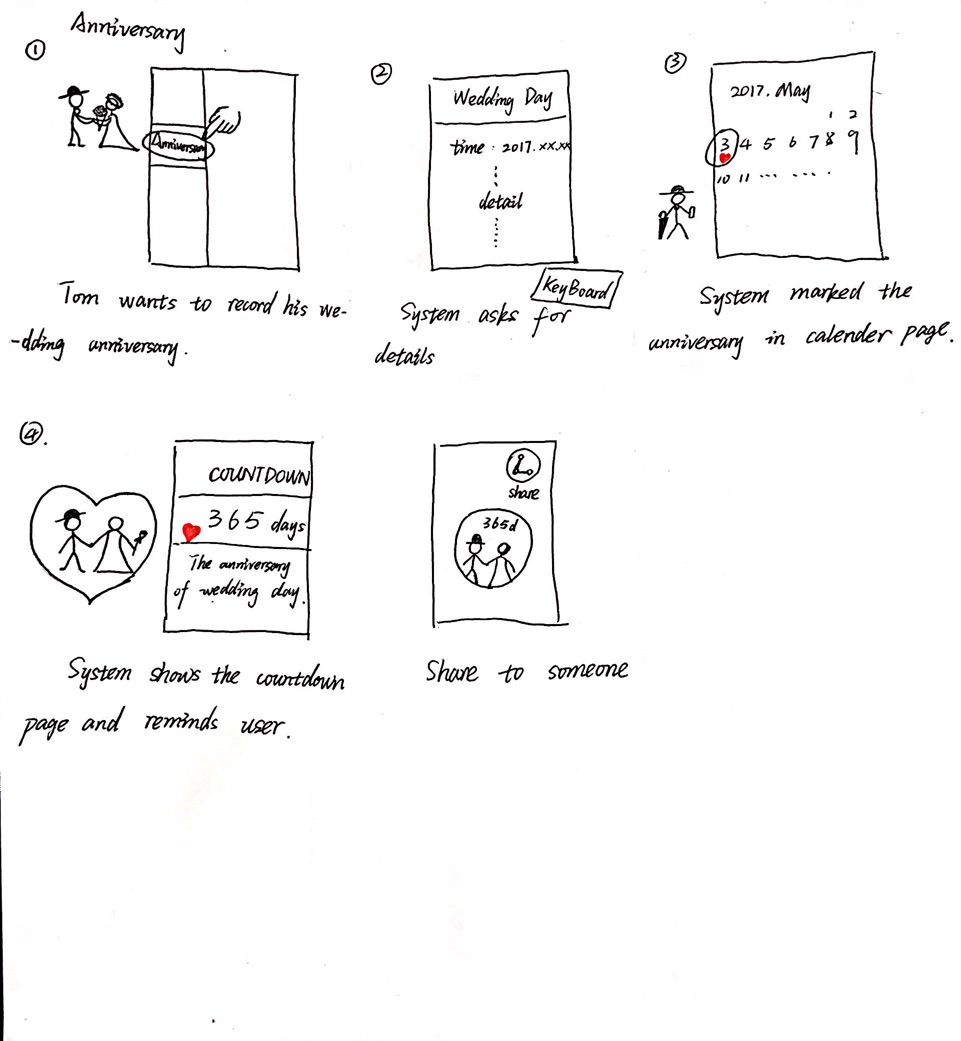 Anniversary
①
Anniversary
Tom wants to record his we-
-dding anniversary.
②
Wedding Day
time : 2017.xx.xx
detail
KeyBoard
System asks for
details
③
2017. May
1 2
3 4 5 6 7 8 9
10 11 ... ... .
System marked the
anniversary in calender page.
④.
COUNTDOWN
365 days
The anniversary
of wedding day.
System shows the countdown
page and reminds user.
share
365d
Share to someone